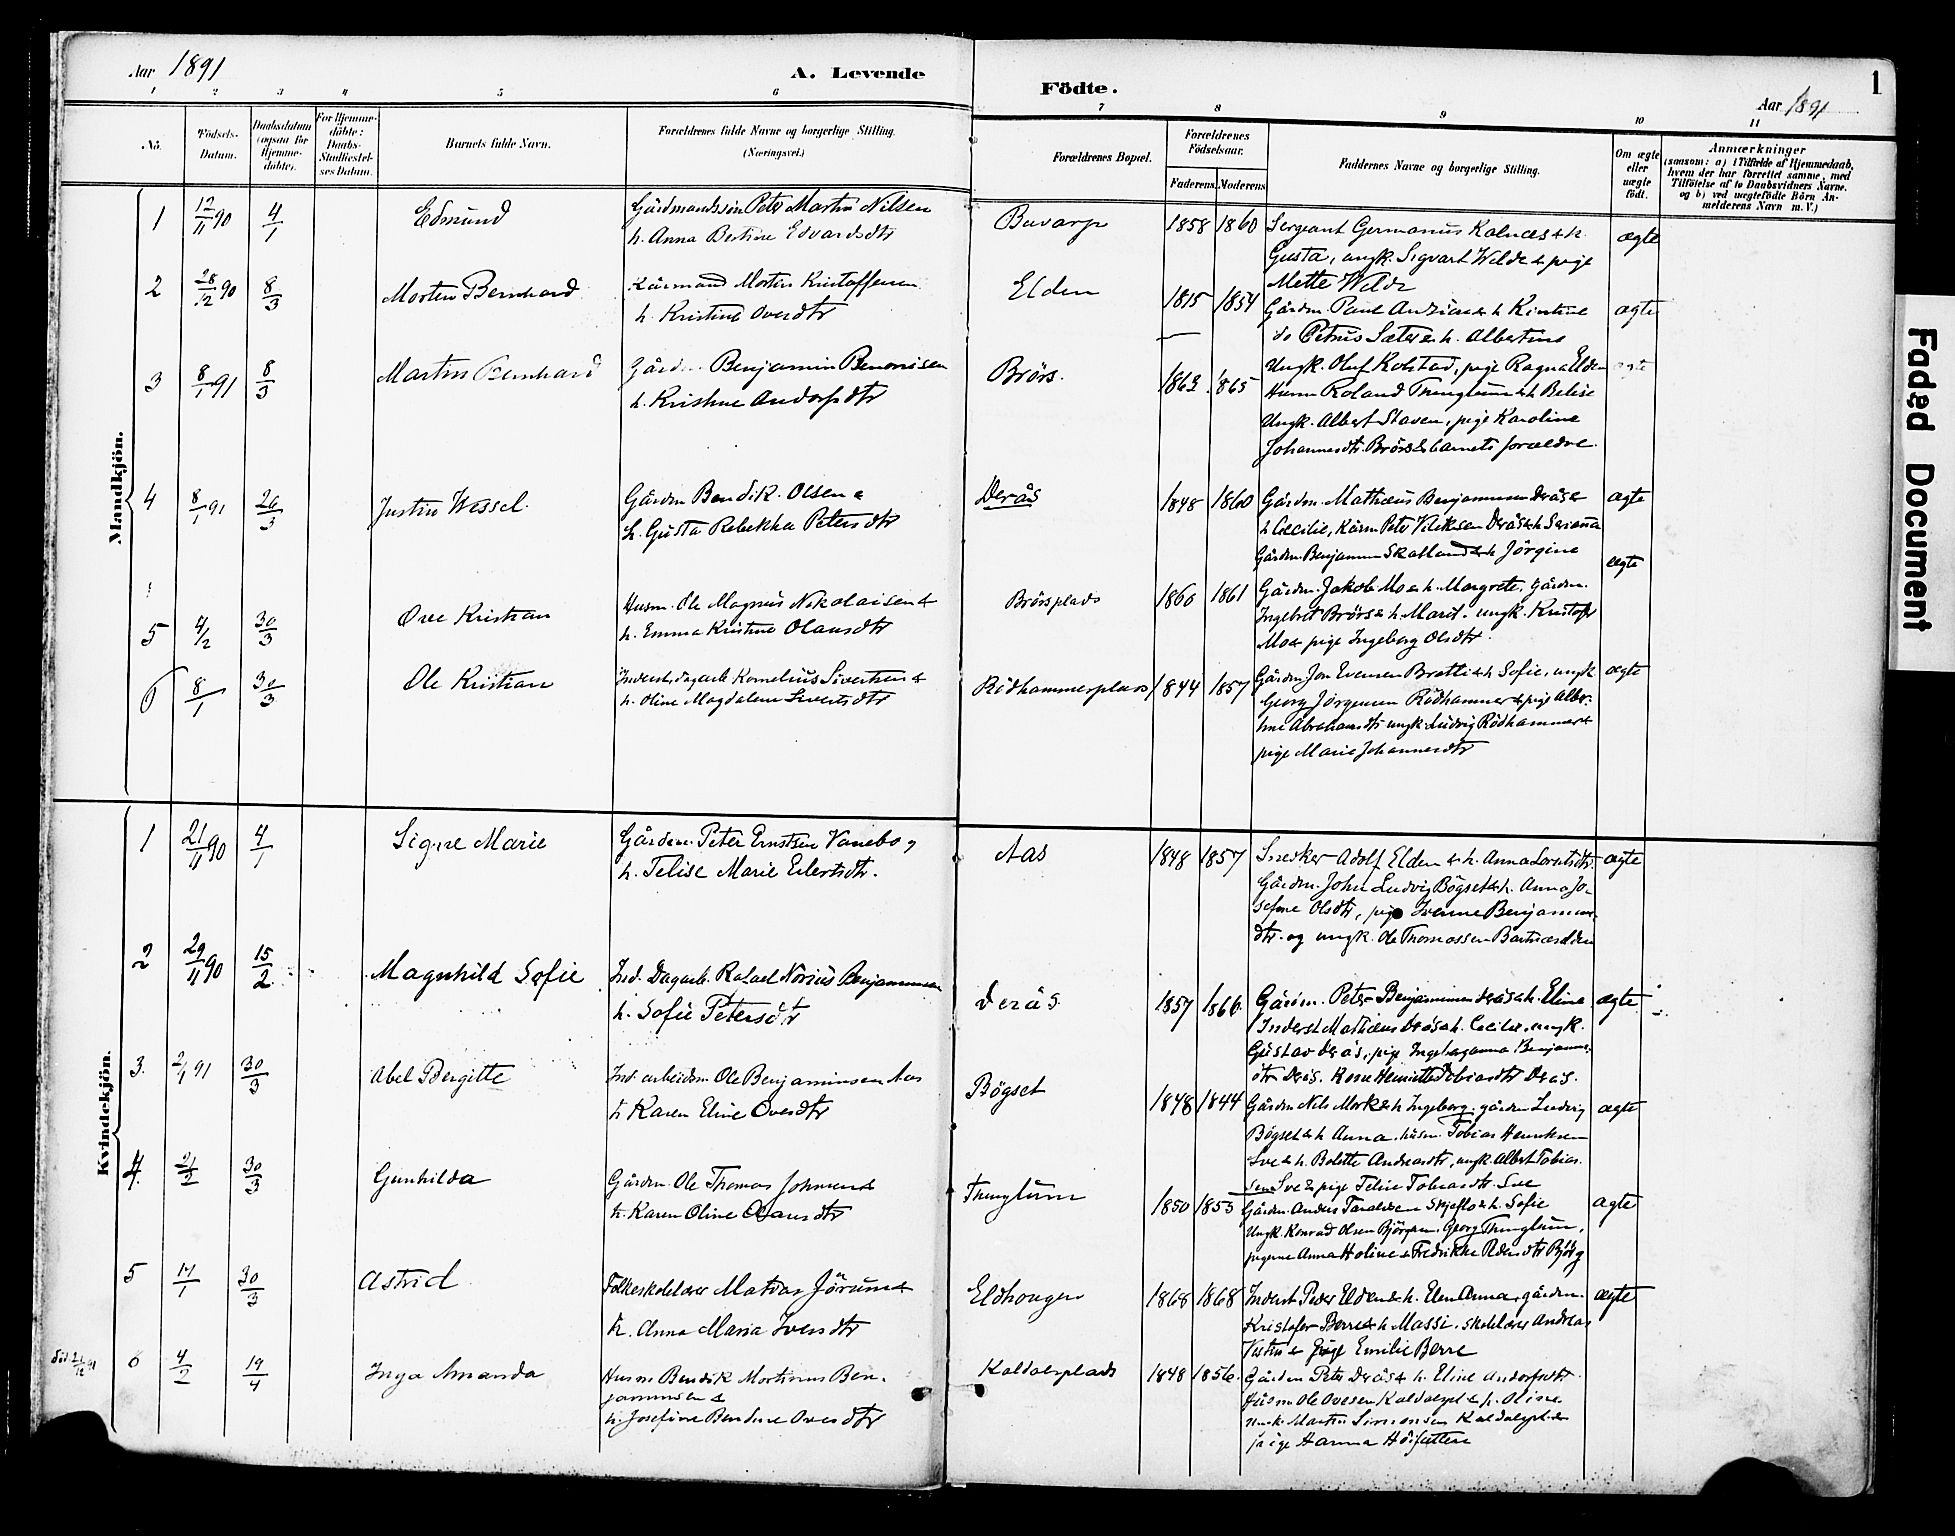 Aar 1891
A. Levende
Födte.
Aar 1891
1
1 2 3 4 5 6 7 8 9 10 11
No.
Födsels-
Datum.
Daabsdatum
(ogsaa for
Hjemme-
döbte).
For Hjemme-
döbte:
Daabs-
Stadfæstel-
ses Datum.
Barnets fulde Navn.
Forældrenes fulde Navne og borgerlige Stilling.
(Næringsvei.)
Forældrenes Bopæl.
Forældrenes
Födselsaar.
Faderens. Moderens.
Faddernes Navne og borgerlige Stilling.
Om ægte
eller
uægte
födt.
Anmærkninger
(saasom: a) i Tilfælde af Hjemmedaab,
hvem der har forrettet samme, med
Tilföielse af to Daabsvidners Navne,
og b) ved uægtefödte Börn An-
melderens Navn m. V.)
Mandkjön.
1 12/11 90 4/1 Edmund
Gårdmandssön Peter Martin Nilsen
h. Anna Bertine Edvardsdtr
Buvarp 1858 1860
Sergeant Germanus Kalnes & h.
Gusta, ungk. Sigvart Welde & pige
Mette Welde
ægte
2 28/12 90 8/3 Morten Bernhard
Kårmand Morten Kristoffersen
h. Kristine Ovesdtr
Elden 1815 1854
Gårdm. Paul Andziar & h Kirstine
do Petrus Sæter & h. Albertine
Ungk. Oluf Kolstad, pige Ragna Elden
ægte
3 8/1 91 8/3 Martin Bernhard
Gårdm. Benjamin Benonisen
h. Kristine Andorsdtr
Brörs. 1863 1865
Husm Roland Thinglum & h Belise
Ungk. Albert Staven, pige Karoline
Johannesdtr. Brörs & barnets forældre.
ægte
4 8/1 91 26/3 Justin Wessel.
Gårdm Bendik Olsen &
h. Gusta Rebekka Petersdtr
Derås 1848 1860
Gårdm. Mathæus Benjaminsen Derås &
h Cecilie, Kårm Peter Derås & h Serianna
Gårdm. Benjamin Skatland & h Jörgine
ægte
ægte
5 4/2 30/3 Ove Kristian
Husm. Ole Magnus Nikolaisen &
h. Emma Kristine Olausdtr
Brörsplads 1860 1861
Gårdm. Jakob Mo & h. Margrete. Gårdm.
Ingebret Brörs & h. Marit. ungk. Kristofer
Mo & pige Ingeborg Olsdtr.
6 8/1 30/3 Ole Kristian
Inderst, dagarb Kornelius Sivertsen &
h. Oline Magdalena Sivertsdtr
Rödhammerplads 1844 1857
Gårdm Jon Evensen Bratli & h Sofie, ungk
Georg Jörgensen Rödhammer & pige Alber-
tine Abrahamsdtr ungk. Ludvig Rödhammer &
pige Marie Johannesdtr
ægte
Kvindekjön.
1 21/11 90 4/1 Signe Marie
Gårdm. Peter Ernstsen Vanebo og
h. Telise Marie Eilertsdtr.
Aas 1848 1857
Snedker Adolf Elden & h. Anna Lorntsdtr.
Gårdm. John Ludvig Bögset & h. Anna Jo-
sefine Olsdtr, pige Ivenne Benjamins-
dtr. og ungk. Ole Thomassen Elden
ægte
2 29/11 90 15/2 Magnhild Sofie
Ind. Dagarb. Rafael Norius Benjaminsen
h. Sofie Petersdtr
Derås 1857 1866
Gårdm. Peter Benjaminsen Derås & h. Eline
Inderst Mathæus Derås & h. Cecilie, ungk.
Gustav Derås, pige Ingeborganna Benjamins-
dtr Derås. Kone Henriette Tobiasdtr Derås.
ægte
3. 2/1 91 30/3 Abel Bergitte
Ind. arbeidsm. Ole Benjaminsen Aas
h Karen Eline Ovesdtr
Bögset 1848 1844
Gårdm Nils Mork & h Ingeborg. gårdm Ludvig
Bögset & h Anna. husm. Tobias Henriksen
Sve & h. Bolette Andreasdtr, ungk Albert Tobias-
sen Sve & pige Feline Tobiasdtr. Sve
ægte
4. 2/2 30/3 Gunhilda
Gårdm. Ole Thomas Johnsen &
h. Karen Oline Olausdtr
Thinglum 1850 1855
Gårdm Anders Taraldsen Skjefto & h. Sofie
Ungk. Konrad Olsen Björgan, Georg Thinglum,
pigerne Anna Holine & Fredrikke Pedersdtr Björg
ægte
5 17/1 30/3 Astrid
Folkeskolelærer Matias Jörum &
h. Anna Maria Iversdtr
Eldhougen 1868 1868
Inderst Peder Elden & h. Elen Anna, gårdm.
Kristofer Berre & h Massi. skolelærer Andreas
& pige Emilie Berre
ægte
död 21/12 91 6 4/2 19/4 Inga Amanda
Husm Bendik Martinus Ben-
jaminsen &
h. Josefine Bendine Ovesdtr
Kaldalsplads 1848 1856.
Gårdm Peter Derås & h. Eline Andorsdtr.
Husm Ole Ovesen Kaldalspl & h. Oline
Ungk. Martin Simonsen Kaldalspl &
pige Hanna
Faded Document